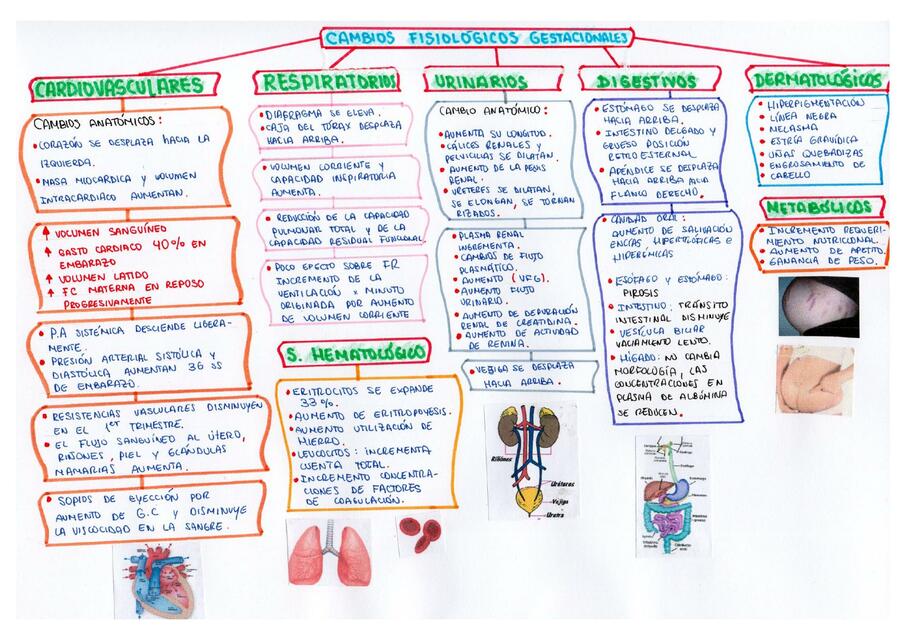 CAMBIOS FISIOLÓGICOS GESTACIONALES
CARDIOVASCULARES
CAMBIOS ANATÓMICOS:
• CORAZÓN SE DESPLAZA HACIA LA
IZQUIERDA.
• MASA MIOCARDICA Y VOLUMEN
INTRACARDIACO AUMENTAN.
↑ VOLUMEN SANGUÍNEO
↑ GASTO CARDIACO 40% EN
EMBARAZO
↑ VOLUMEN LATIDO
↑ FC MATERNA EN REPOSO
PROGRESIVAMENTE
• P.A SISTÉMICA DESCIENDE LIGERA-
MENTE.
• PRESIÓN ARTERIAL SISTÓLICA Y
DIASTÓLICA AUMENTAN 36 SS
DE EMBARAZO.
• RESISTENCIAS VASCULARES DISMINUYEN
EN EL 1er TRIMESTRE.
• EL FLUJO SANGUÍNEO AL ÚTERO,
RIÑONES, PIEL Y GLÁNDULAS
MAMARIAS AUMENTA.
• SOPLOS DE EYECCIÓN POR
AUMENTO DE G.C Y DISMINUYE
LA VISCOCIDAD EN LA SANGRE.
RESPIRATORIOS
• DIAFRAGMA SE ELEVA.
• CAJA DEL TÓRAX DESPLAZA
HACIA ARRIBA.
• VOLUMEN CORRIENTE Y
CAPACIDAD INSPIRATORIA
AUMENTA.
• REDUCCIÓN DE LA CAPACIDAD
PULMONAR TOTAL Y DE LA
CAPACIDAD RESIDUAL FUNCIONAL.
• POCO EFECTO SOBRE FR
INCREMENTO DE LA
VENTILACIÓN x MINUTO
ORIGINADA POR AUMENTO
DE VOLUMEN CORRIENTE
S. HEMATOLÓGICO
• ERITROCITOS SE EXPANDE
33%.
• AUMENTO DE ERITROPOYESIS.
• AUMENTO UTILIZACIÓN DE
HIERRO.
• LEUCOCITOS: INCREMENTA
CUENTA TOTAL.
• INCREMENTO CONCENTRA-
CIONES DE FACTORES
DE COAGULACIÓN.
URINARIOS
CAMBIO ANATÓMICO:
• AUMENTA SU LONGITUD.
• CÁLICES RENALES Y
PELVICILLAS SE DILATAN.
• AUMENTO DE LA PELVIS
RENAL.
• URETERES SE DILATAN,
SE ELONGAN, SE TORNAN
RIZADOS.
• PLASMA RENAL
INCREMENTA.
• CAMBIOS DE FLUJO
PLASMÁTICO.
• AUMENTO (VFG).
• AUMENTO FLUJO
URINARIO.
• AUMENTO DE DEPURACIÓN
RENAL DE CREATIDINA.
• AUMENTO DE ACTIVIDAD
DE RENINA.
• VEJIGA SE DESPLAZA
HACIA ARRIBA.
Riñones
Uréteres
Vejiga
Uretra
DIGESTIVOS
• ESTÓMAGO SE DESPLAZA
HACIA ARRIBA.
• INTESTINO DELGADO Y
GRUESO POSICIÓN
RETRO ESTERNAL
• APÉNDICE SE DESPLAZA
HACIA ARRIBA HACIA
FLANCO DERECHO.
• CAVIDAD ORAL:
AUMENTO DE SALIVACIÓN
ENCÍAS HIPERTRÓFICAS E
HIPERÉMICAS
• ESÓFAGO Y ESTÓMAGO:
PIROSIS
• INTESTINO: TRÁNSITO
INTESTINAL DISMINUYE
• VESÍCULA BILIAR
VACIAMIENTO LENTO.
• HÍGADO: NO CAMBIA
MORFOLOGÍA, LAS
CONCENTRACIONES EN
PLASMA DE ALBÚMINA
SE REDUCEN.
DERMATOLÓGICOS
• HIPERPIGMENTACIÓN
• LÍNEA NEGRA
• MELASMA
• ESTRÍA GRAVÍDICA
• UÑAS QUEBADIZAS
• ENGROSAMIENTO DE
• CABELLO
METABÓLICOS
• INCREMENTO REQUERI-
MIENTO NUTRICIONAL.
• AUMENTO DE APETITO.
• GANANCIA DE PESO.